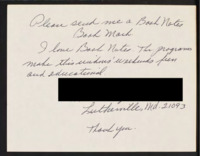 Please send me a Book Notes
Book Mark
I love Book Notes The programs
make this weekend weekends fun
and educational
Lutherville, Md. 21093
Thank you